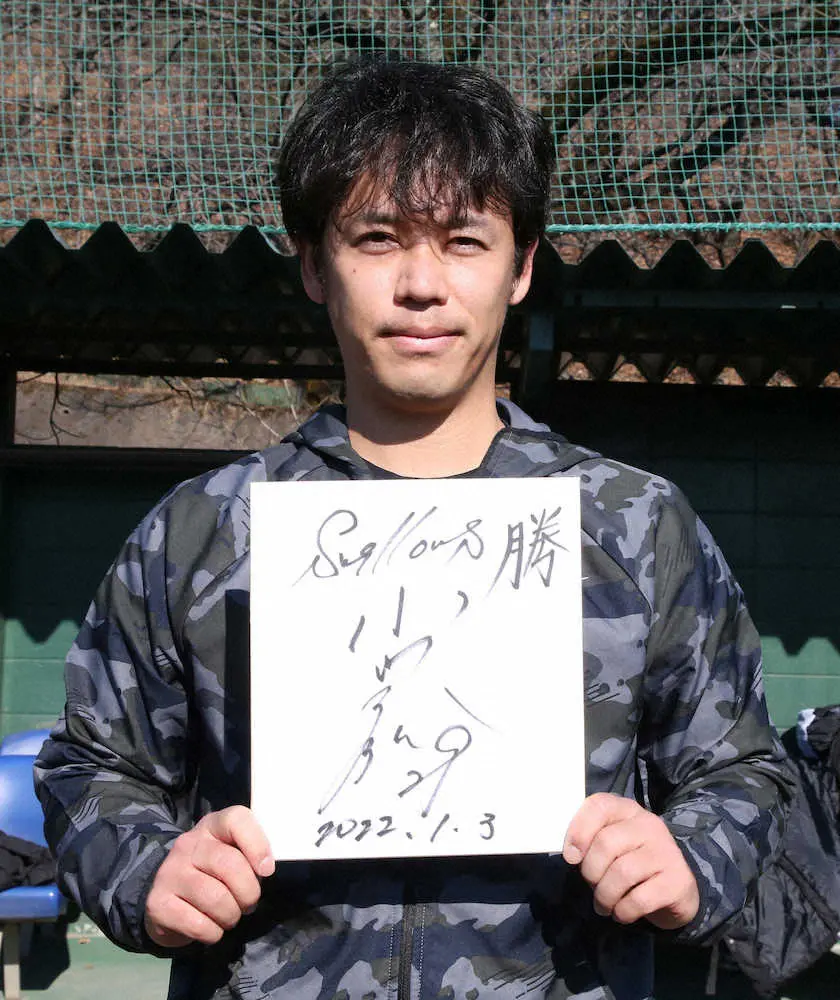 Swallows 勝
小
29
2022.1.3